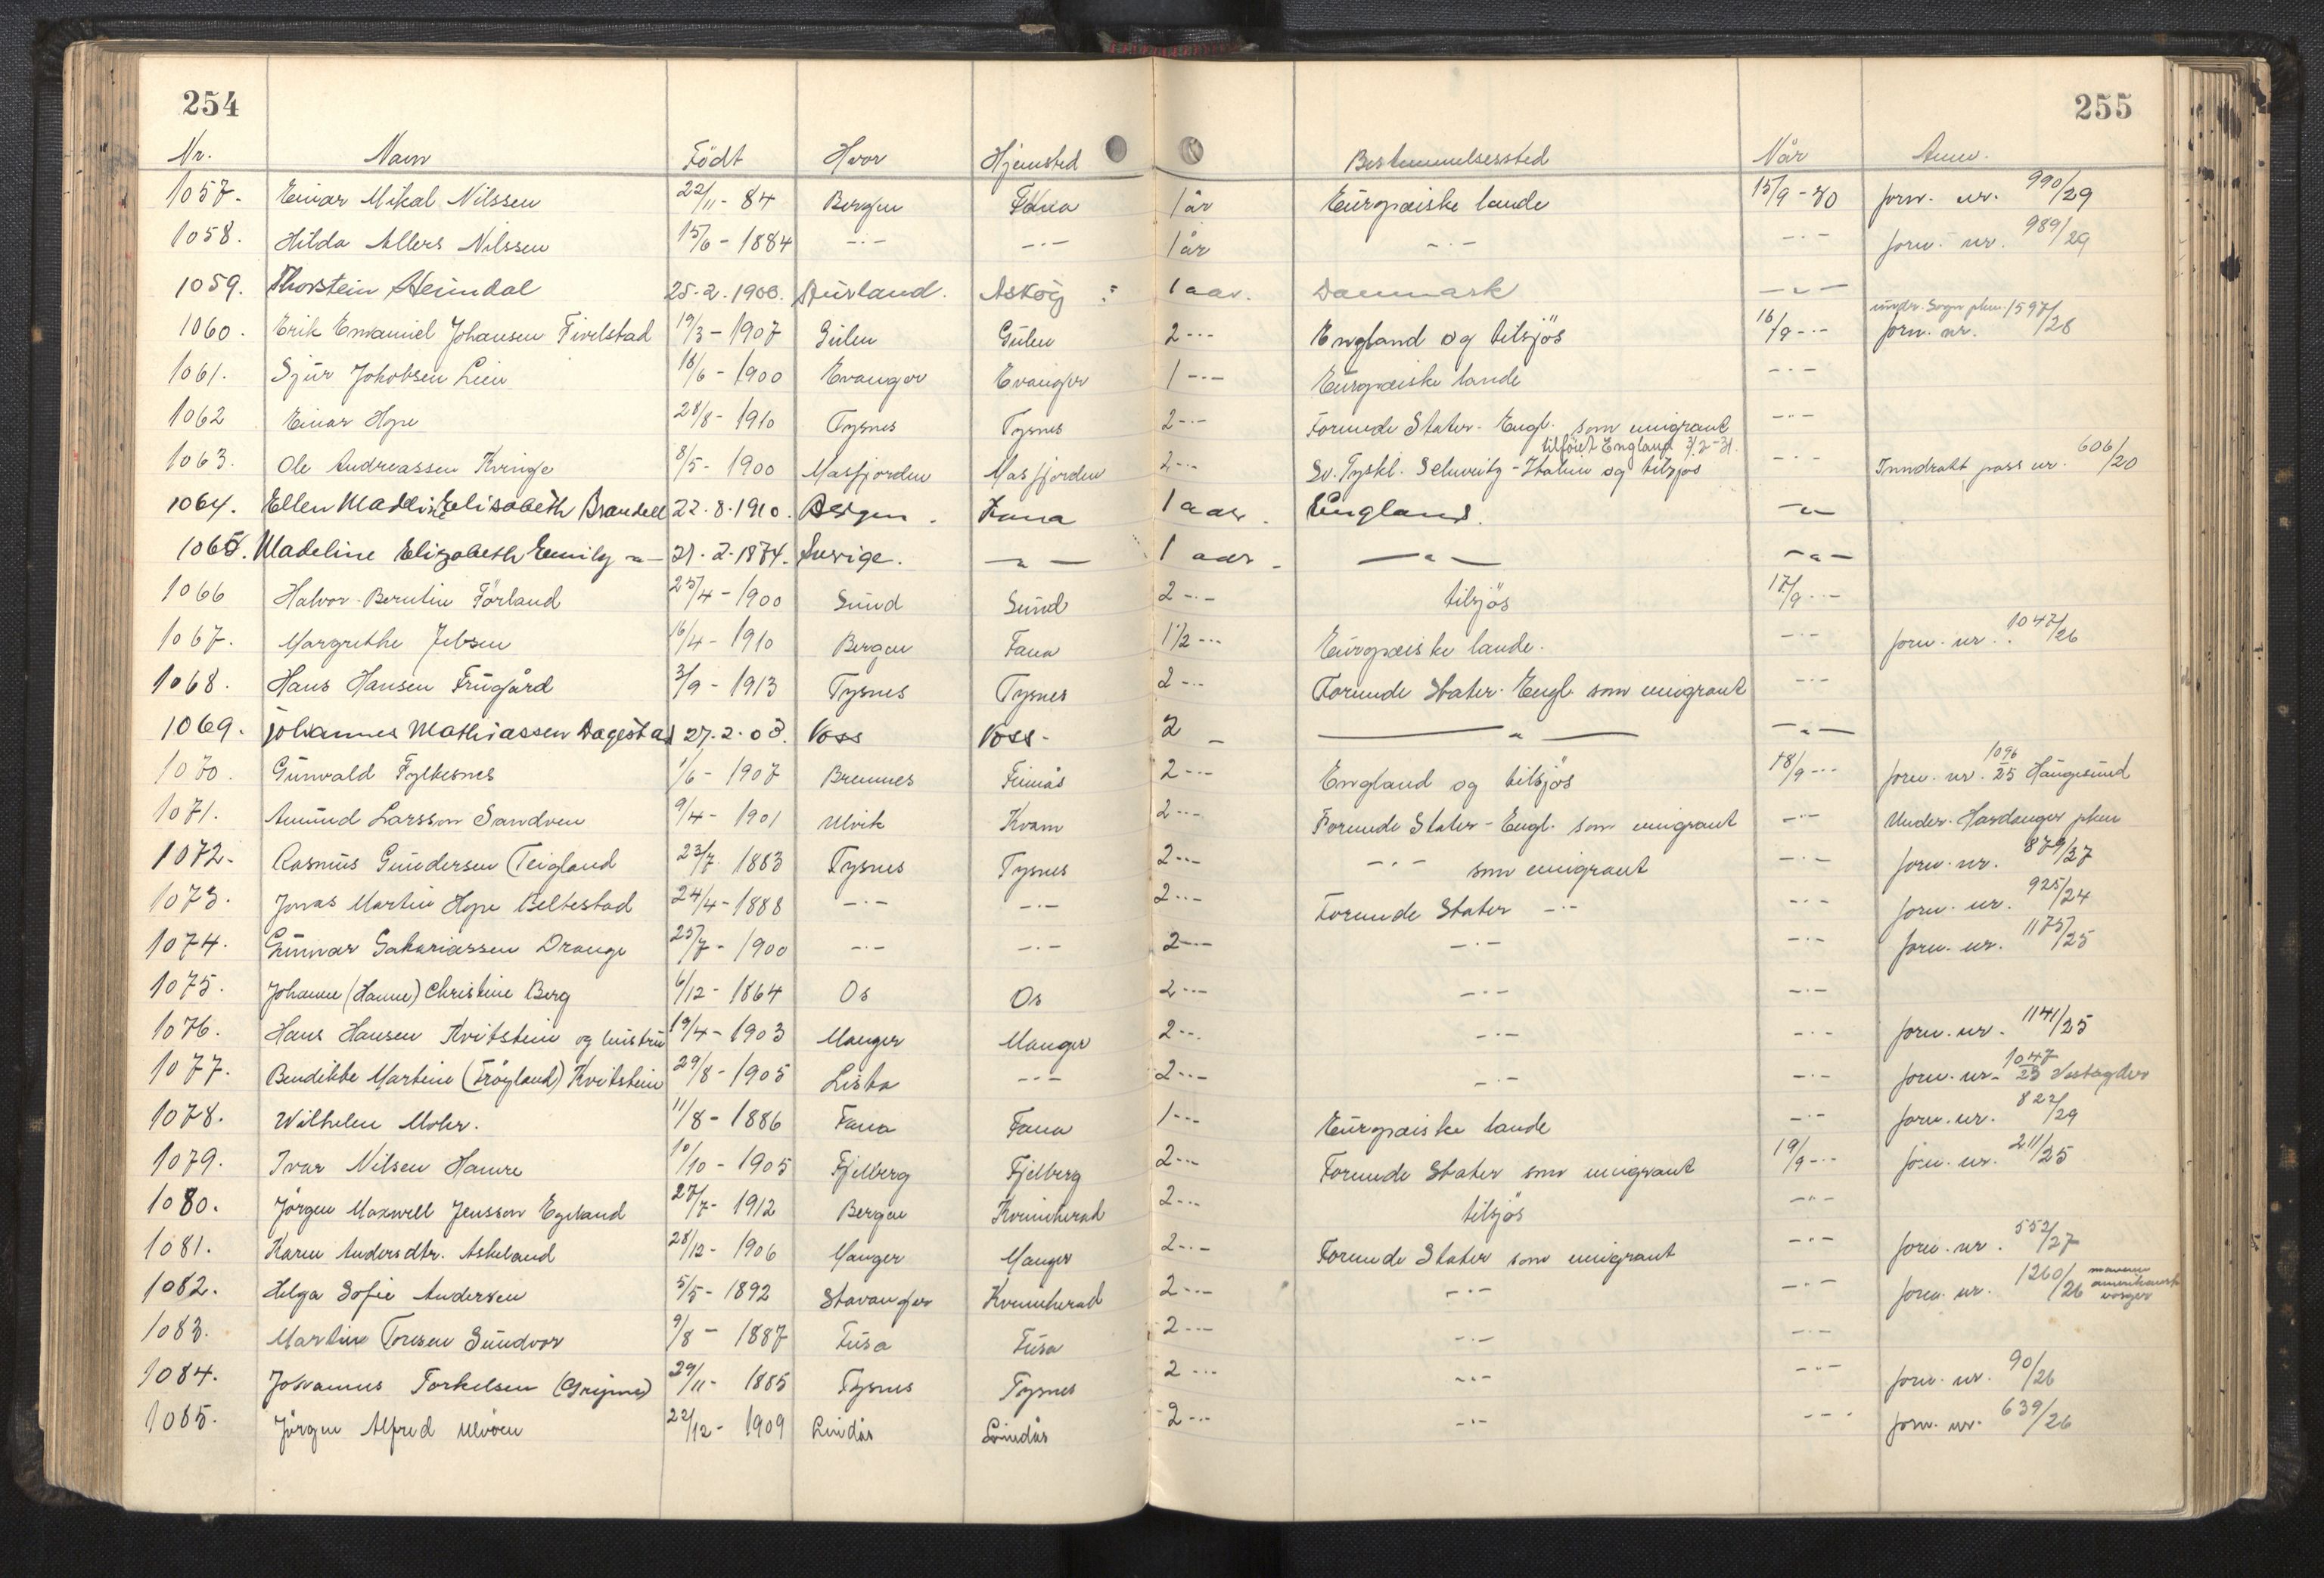 254
255
Nr. Navn Födt Hvor Hjemsted Bestemmelsessted Når Anm.
1057. Einar Mikal Nilssen 22/11 - 84 Bergen Fana 1 år Europæiske lande 15/9 - 30 forr. nr. 990/29
1058. Hilda Allers Nilssen 15/6 - 1884 -·- -·- 1 år -·- -·- forr. nr. 989/29
1059. Thorstein Heimdal 25.2.1900. Aurland. Askøy 1 aar. Danmark -"-
1060. Erik Emanuel Johansen Fivelstad 19/3 - 1907 Gulen Gulen 2 -·- England og tilsjös 16/9 -·- undr. Sogn pkm. forr. nr. 1597/28
1061. Sjur Jakobsen Lien 16/6 - 1900 Evanger Evanger 1 -·- Europæiske lande -·-
1062 Einar Hope 28/8 - 1910 Tysnes Tysnes 2 -·- Forende Stater - Engl. som emigrant -·-
tilföiet England 3/2-31.
1063. Ole Andreassen Kvinge 8/5 - 1900 Masfjorden Masfjorden 2 -·- Sv. Tyskl. Schweitz - Italien og tilsjös -·- Inndratt pass nr. 606/20
1064. Ellen Madeline Elisabeth Brandell 22.8.1910. Bergen. Fana 1 aar. England. -"-
1065. Madeline Elizabeth Emily -"- 21.2.1874. Sverige. -"- 1 aar -"- -"-
1066 Halvor Berntin Förland 25/4 - 1900 Sund Sund 2 -·- tilsjös 17/9 -·-
1067. Margrethe Jebsen 16/4 - 1910 Bergen Fana 1 1/2 -·- Europæiske lande. -·- forr. nr. 1047/26
1068. Hans Hansen Frugård 3/9 - 1913 Tysnes Tysnes 2 -·- Forende Stater. Engl. som emigrant -·-
1069. Johannes Mathiassen Dagestad 27.2.03. Voss Voss - 2 - -"- -"-
1070. Gunvald Fylkesnes 1/6 - 1907 Bremnes Finnås 2 -·- England og tilsjös 18/9 -·- forr. nr. 1096/25 Haugesund
1071. Amund Larsson Sandven 9/4 - 1901 Ulvik Kvam 2 -·- Forende Stater - Engl. som emigrant -·- Under. Hardanger pkm
1072. Rasmus Gundersen Teigland 23/7. 1883 Tysnes Tysnes 2 -·- -·- som emigrant -·- forr. nr. 879/27
1073. Jonas Martin Hope Beltestad 24/4 - 1888 -·- -·- 2 -·- Forende Stater -·- -·- forr. nr. 925/24
1074. Gunnar Sakariassen Drange 25/7 - 1900 -·- -·- 2 -·- -·- -·- forr. nr. 1175/25
1075. Johanne (Hanne) Christine Berg 6/12 - 1864 Os Os 2 -·- -·- -·-
1076. Hans Hansen Kvitstein og hustru 19/4 - 1903 Manger Manger 2 -·- -·- -·- forr. nr. 1141/25
1077. Bendikte Martine (Fröyland) Kvitstein 29/8 - 1905 Lista -·- 2 -·- -·- -·- forr. nr. 1047/23 Vestagder
1078. Wilhelm Mohr. 11/8 - 1886 Fana Fana 1 -·- Europæiske lande -·- forr. nr. 822/29
1079. Ivar Nilsen Hamre 10/10 - 1905 Fjelberg Fjelberg 2 -·- Forende Stater som emigrant 19/9 -·- forr. nr. 211/25
1080. Jörgen Maxwell Jensson Egeland 27/7 - 1912 Bergen Kvinnherad 2 -·- tilsjös -·-
1081. Karen Andersdtr. Askeland 28/12 - 1906 Manger Manger 2 -·- Forende Stater som emigrant -·- forr. nr. 552/27
1082. Helga Sofie Andersen 5/5 - 1892 Stavanger Kvinnherad 2 -·- -·- -·- forr. nr. 1260/26 mannen amerikansk borger
1083. Martin Toresen Sundvor 9/8 - 1887 Fusa Fusa 2 -·- -·- -·-
1084. Johannes Torkelsen (Gripne) 29/11 - 1885 Tysnes Tysnes 2 -·- -·- -·- forr. nr. 90/26
1085. Jörgen Alfred Ulvöen 22/12 - 1909 Lindås Lindås 2 -·- -·- -·- forr. nr. 639/26